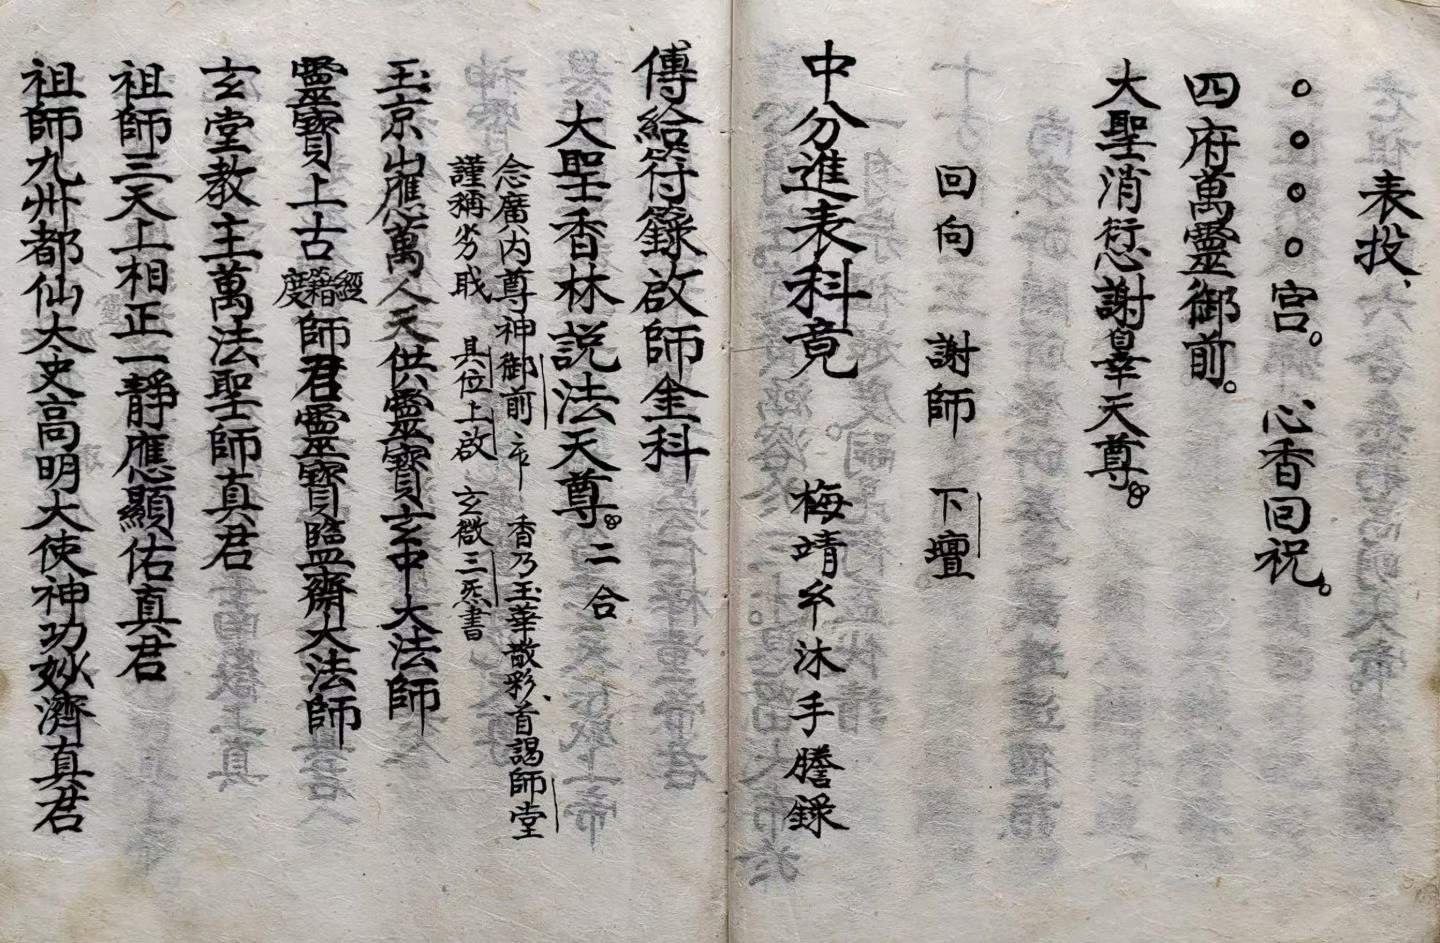 表投、
。。。。宮。心香回祝。
四府萬靈御前。
大聖消愆謝辠天尊。
回向 謝師 下壇
中分進表科竟 梅靖弟沐手謄錄
傳給符籙啟師金科
大聖香林説法天尊。二合
念廣內尊神御前 香乃玉華散彩、首謁師堂
謹稱劣戝 具位上啟 玄微三炁書
玉京山應萬人天供靈寶玄中大法師
靈寶上古經籍度師君靈寶監齋大法師
玄堂教主萬法聖師真君
祖師三天上相正一靜應顯佑真君
祖師九州都仙大史高明大使神功妙濟真君